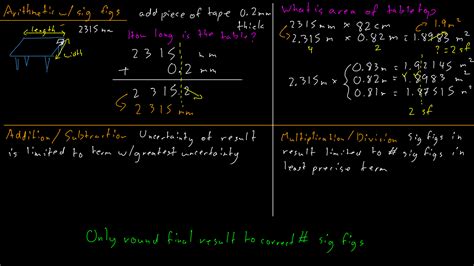 Arithmetic w/ sig figs
length
2315 mm
width
add piece of tape 0.2mm
thick
How long is the table?
2315 mm
+ 0.2 mm
2315.2
2315 mm
What is area of tabletop?
2315 mm × 82 cm
2.315 m × 0.82 m = 1.8983 m²
4
2
1.9 m²
? = 2 sf
2.315 m ×
0.83 m = 1.92145 m²
0.82 m = 1.8983 m²
0.81 m = 1.87515 m²
2 sf
Addition/Subtraction Uncertainty of result
is limited to term w/greatest uncertainty
Multiplication/Division sig figs in
result limited to # sig figs in
least precise term
Only round final result to correct # sig figs